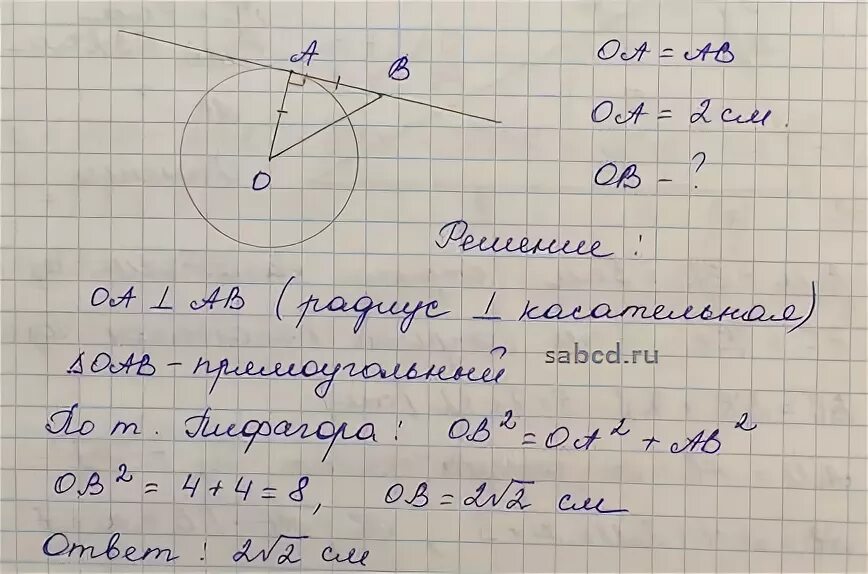 A
B
O
OA = AB
OA = 2 см.
OB - ?
Решение :
OA ⊥ AB (радиус ⊥ касательная)
sabcd.ru
ΔOAB - прямоугольный
По т. Пифагора : OB² = OA² + AB²
OB² = 4 + 4 = 8, OB = 2√2 см
Ответ : 2√2 см